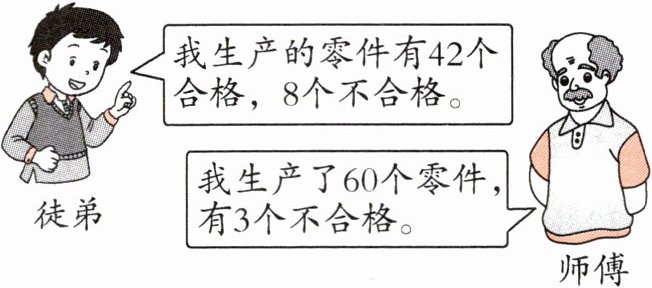 我生产的零件有42个
合格，8个不合格。
徒弟
我生产了60个零件，
有3个不合格。
师傅